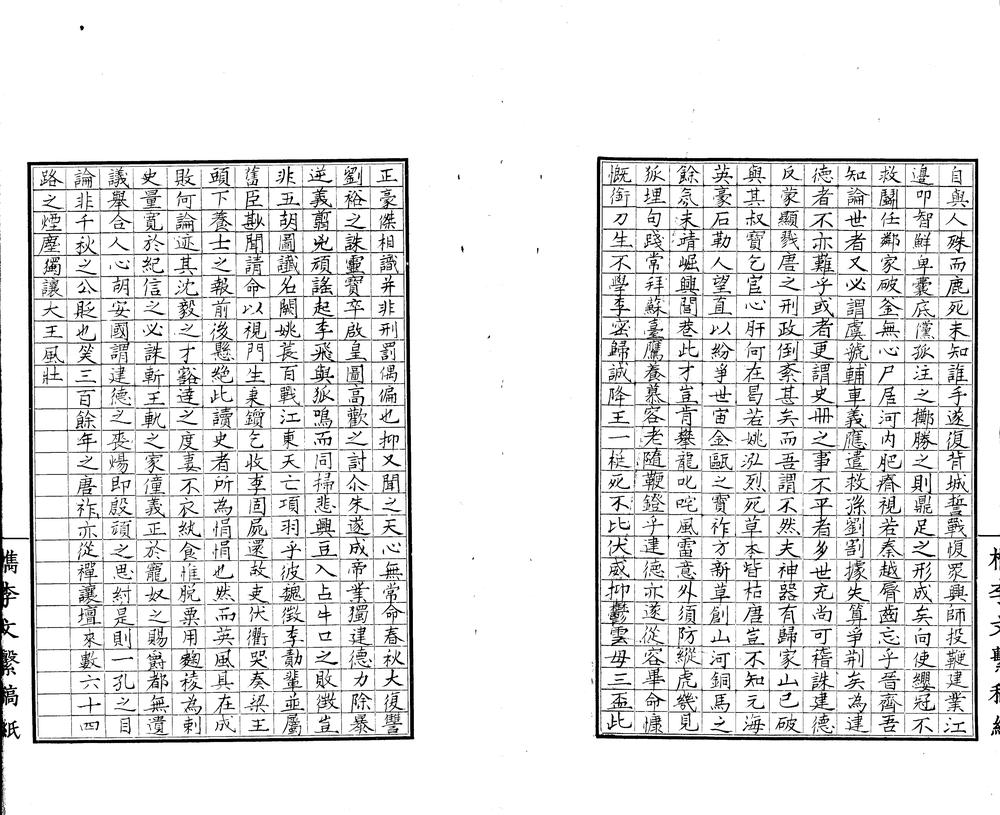 自與人殊而鹿死未知誰手遂復背城誓戰愎眾興師投鞭建業江
邊叩智鮮卑囊底儻孤注之擲勝之則鼎足之形成矣向使纓冠不
救鬭任鄰家破釜無心尸居河內肥瘠視若秦越脣齒忘乎晉齊吾
知論世者又必謂虞虢輔車義應遣救孫劉割據失算爭荆矣為建
德者不亦難乎或者更謂史册之事不平者多世充尚可稽誅建德
反蒙顯戮唐之刑政倒紊甚矣而吾謂不然夫神器有歸家山已破
與其叔寶乞官心肝何在曷若姚泓烈死草本皆枯唐豈不知元海
英豪石勒人望直以紛爭世宙金甌之寶祚方新草創山河銅馬之
餘氛未靖崛興閭巷此才豈肯攀龍叱咤風雷意外須防縱虎幾見
狐埋句踐常拜蘇臺鷹養慕容老隨鞭鐙乎建德亦遂從容畢命慷
慨銜刀生不學李宻歸誠降王一梃死不比伏威抑鬱雲母三盃此
正豪傑相識并非刑罰偶偏也抑又聞之天心無常命春秋大復讐
劉裕之誅靈寶卒啟皇圖高歡之討尒朱遂成帝業獨建德力除暴
逆義翦兇頑謠起李飛與狐鳴而同掃悲興豆入占牛口之敗徵豈
非五胡圖讖名闕姚萇百戰江東天亡項羽乎彼魏徵李勣輩並屬
舊臣尠聞請命以視門生東鑕乞收李固屍還故吏伏衝哭奏梁王
頭下養士之報前後懸絕此讀史者所為悁悁也然而英風具在成
敗何論迹其沈毅之才豁達之度妻不衣紈食惟脫粟用麴稜為剌
史量寬於紀信之必誅斬王軌之家僮義正於寵奴之賜爵都無遺
議舉合人心胡安國謂建德之喪煬即殷頑之思紂是則一孔之目
論非千秋之公貶也笑三百餘年之唐祚亦從禪讓壇來數六十四
路之煙塵獨讓大王風壯
檇李文繫稿紙